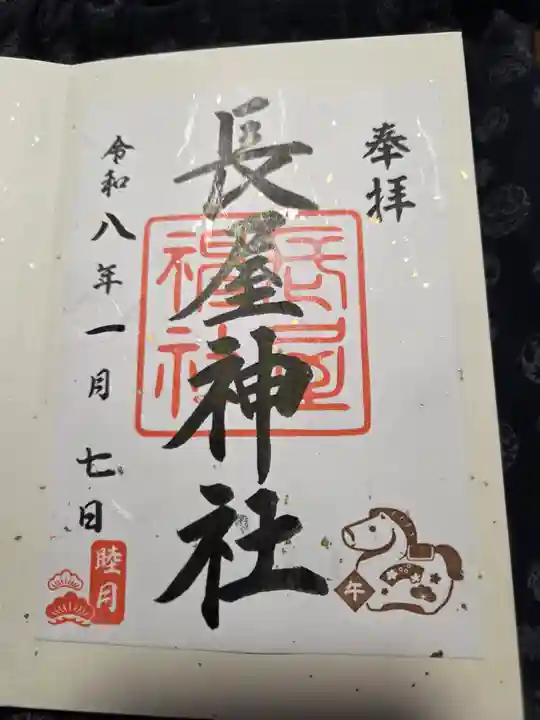 奉拝
長屋神社
長屋神社
令和八年一月七日
睦月
午